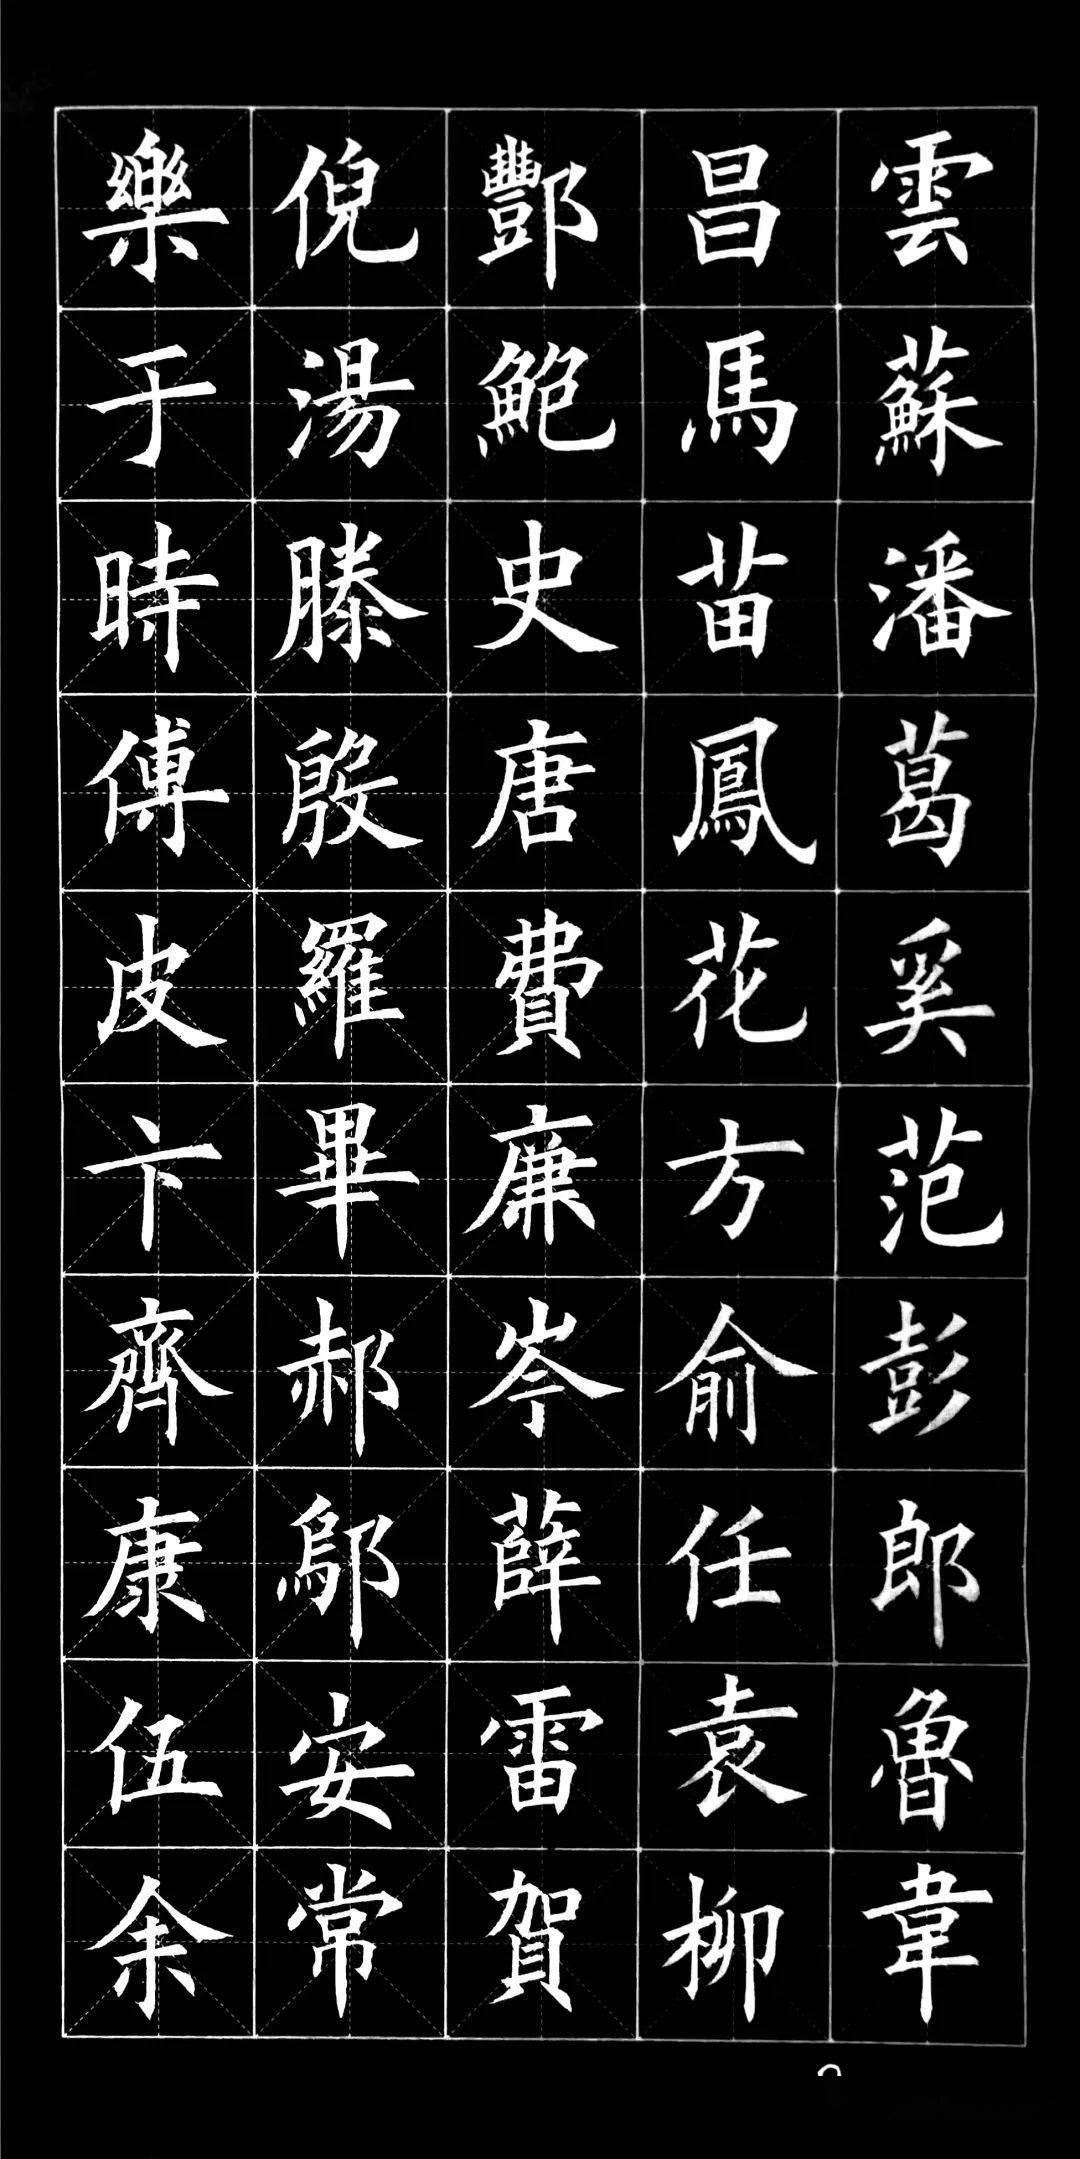 雲蘇潘葛奚范彭郎魯韋
昌馬苗鳳花方俞任袁柳
酆鮑史唐費廉岑薛雷賀
倪湯滕殷羅畢郝鄔安常
樂于時傅皮卞齊康伍余